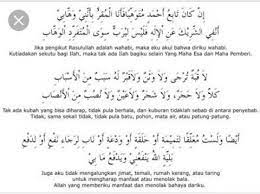 إِنْ كَانَ تَابِعُ أَحْمَدَ مُتَوَهِّبًا فَأَنَا الْمُقِرُّ بِأَنَّنِي وَهَّابِي
أَنْفِي الشَّرِيْكَ عَنِ الْإِلَهِ فَلَيْسَ لِيْ رَبٌّ سِوَى الْمُتَفَرِّدِ الْوَهَّابِ
Jika pengikut Rasulullah adalah wahabi, maka aku akui bahwa diriku wahabi.
Kutiadakan sekutu bagi Ilah, maka tak ada Ilah bagiku selain Yang Maha Esa dan Maha Pemberi.
لَا قُبَّةٌ تُرْجَى وَلَا وَثَنٌ وَلَا قَبْرٌ لَهُ سَبَبٌ مِنَ الْأَسْبَابِ
كَلَّا وَلَا حَجَرٌ، وَلَا شَجَرٌ وَلَا عَيْنٌ وَلَا نُصُبٌ مِنَ الْأَنْصَابِ
Tak ada kubah yang bisa diharap, tidak pula berhala, dan kuburan tidaklah sebab di antara penyebab.
Tidak, sama sekali tidak, tidak pula batu, pohon, mata air, atau patung-patung.
أَيْضًا وَلَسْتُ مُعَلِّقًا لِتَمِيْمَةٍ أَوْ حَلْقَةٍ أَوْ وَدْعَةٍ أَوْ نَابِ
لِرَجَاءِ نَفْعٍ أَوْ لِدَفْعِ بَلِيَّةٍ اللهُ يَنْفَعُنِيْ وَيَدْفَعُ مَا بِيْ
Juga aku tidak mengalungkan jimat, temali, rumah kerang, atau taring
untuk mengharap manfaat atau menolak bala.
Allah yang memberiku manfaat dan menolak bahaya dariku.